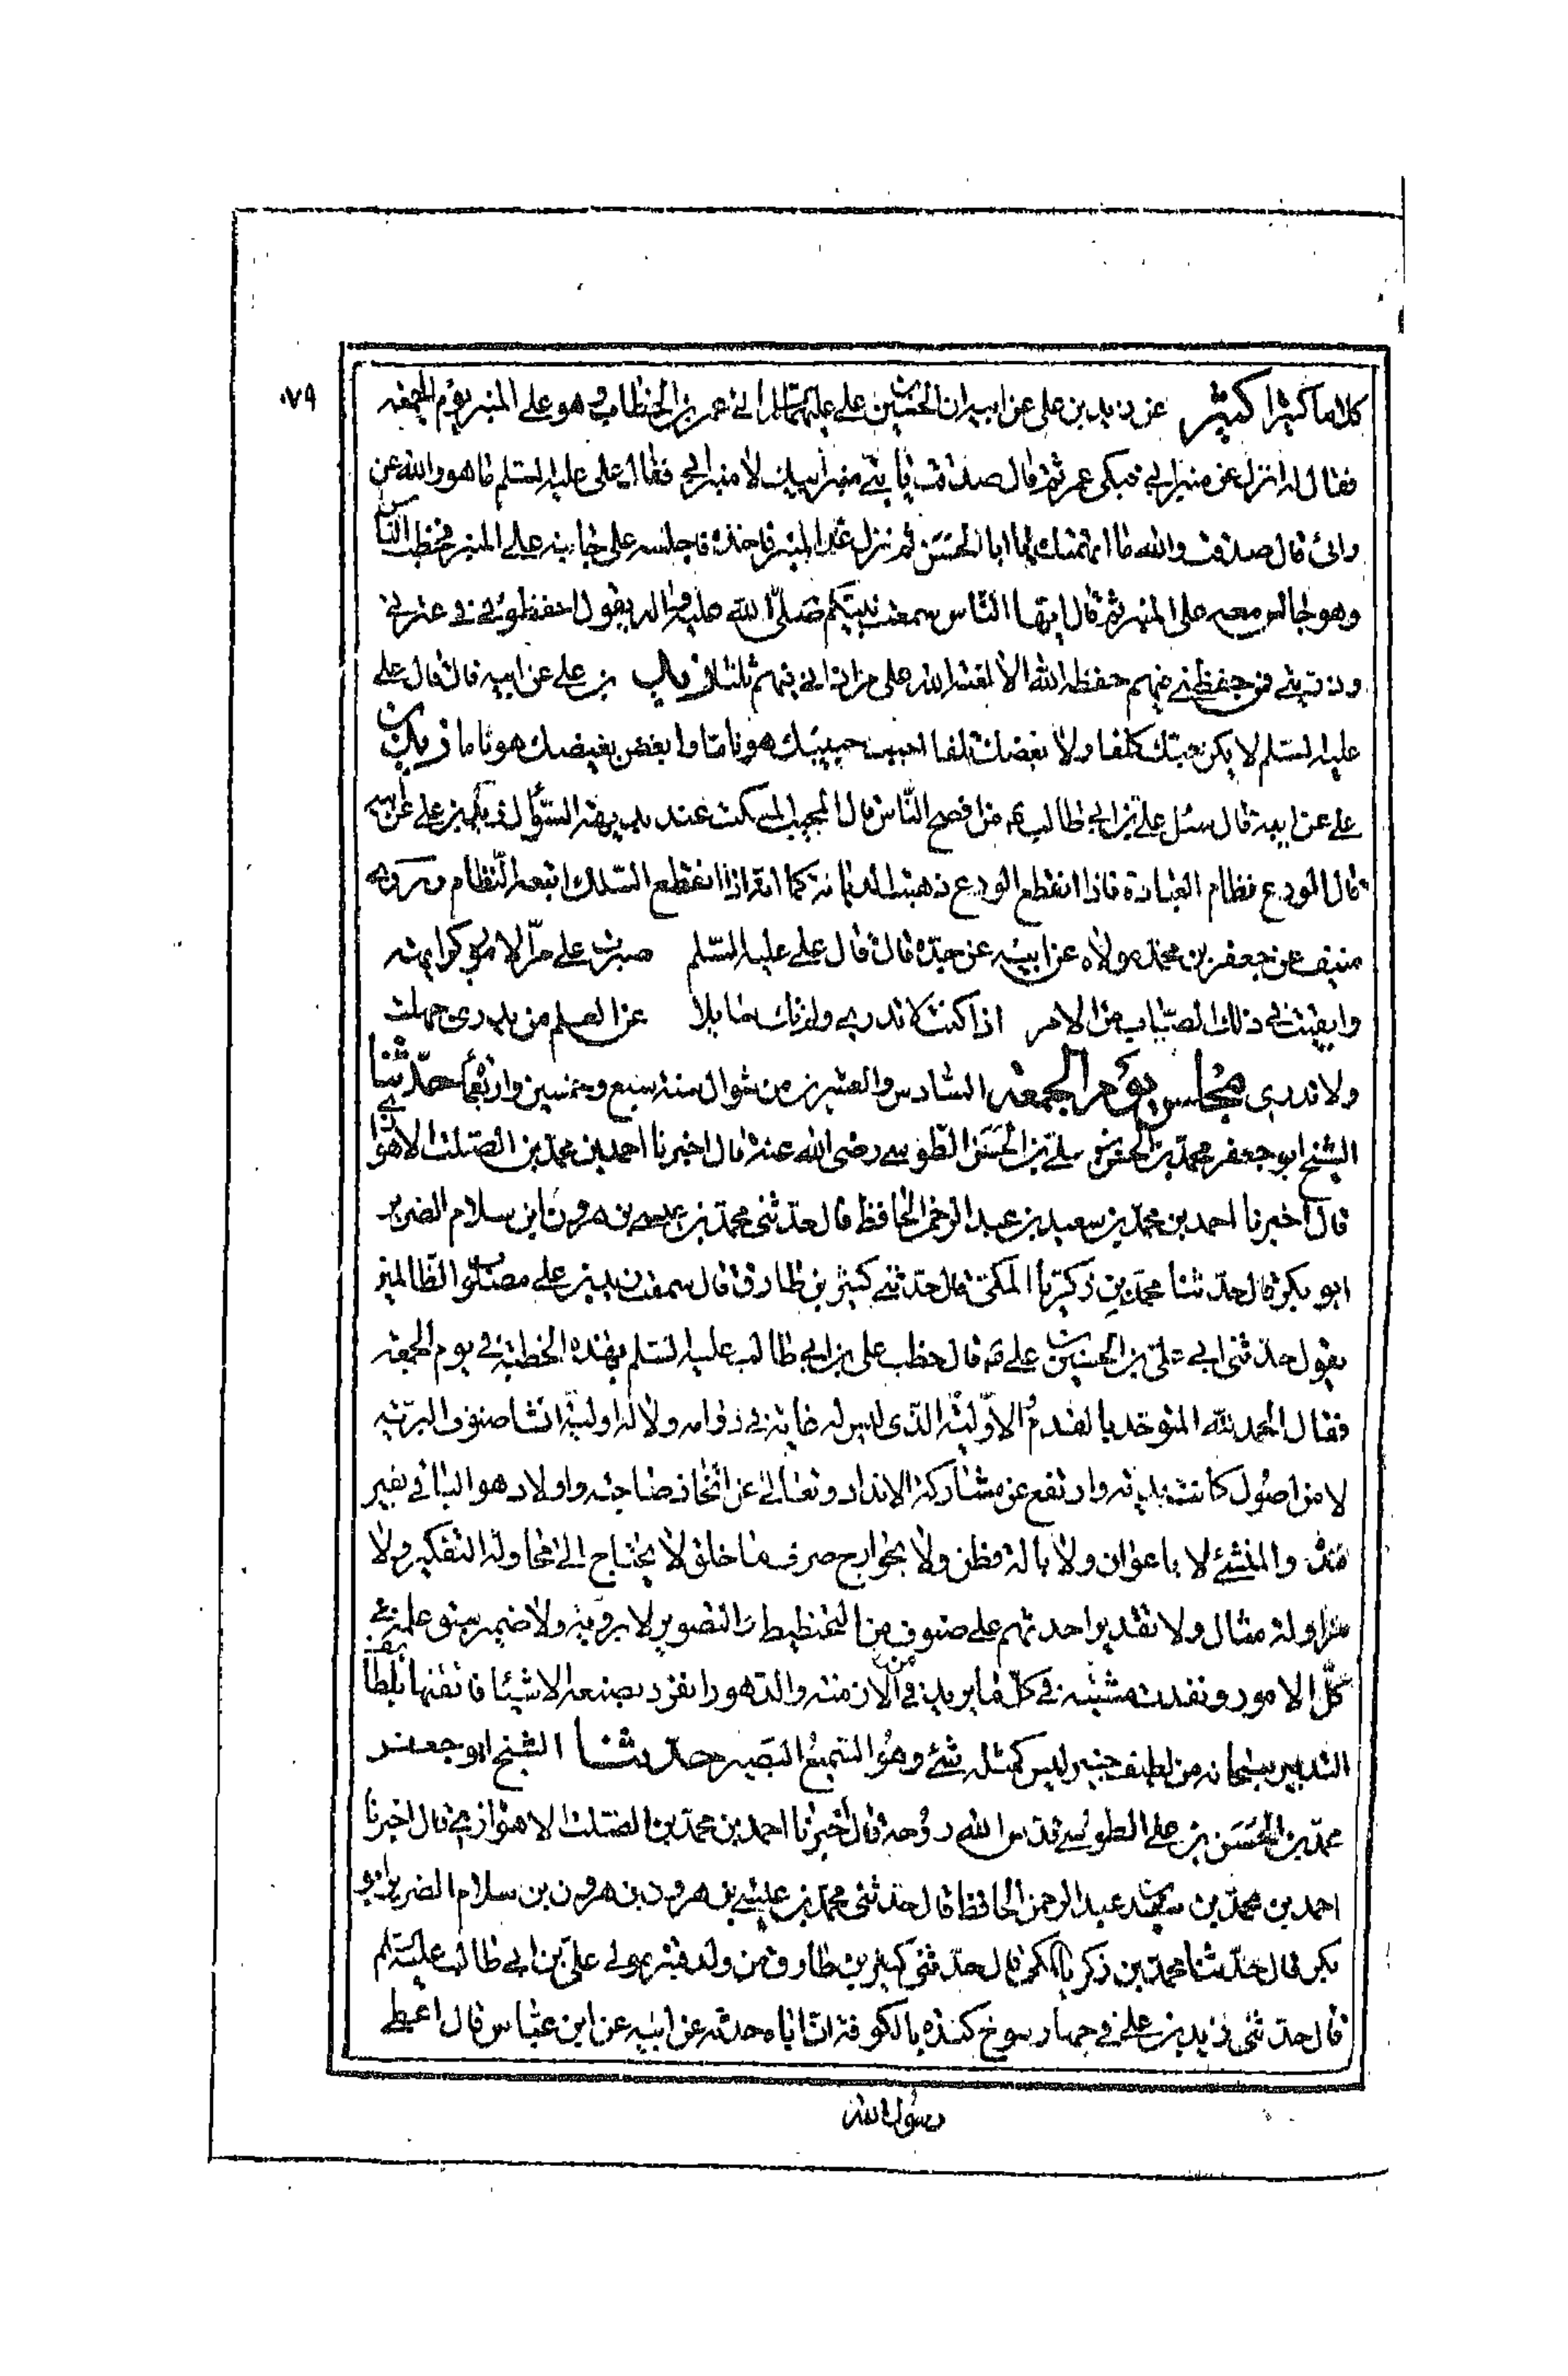 ٠٧٩
كلاما كثيرا كثير عن زيد بن علي عن ابيه ان الحسين بن علي عليهما السلام اتى عمر بن الخطاب و هو على المنبر يوم الجمعه
فقال له انزل عن منبر ابي فبكى عمر ثم قال صدقت يا بني منبر ابيك لا منبر ابي فقال علي عليه السلم ما هو والله عن
رائي قال صدقت والله ما اتهمتك يا ابا الحسن ثم نزل عن المنبر فاخذه فاجلسه على جانبه على المنبر فخطب الناس
وهو جالس معه على المنبر ثم قال ايها الناس سمعت نبيكم صلى الله عليه واله يقول احفظوني في عترتي
وذريتي فمن حفظني فيهم حفظه الله الا لعنة الله على من اذاني فيهم ثلثا زيد بن علي عن ابيه قال قال علي
عليه السلم لا يكن حبك كلفا ولا بغضك تلفا احبب حبيبك هونا ما وابغض بغيضك هونا ما زيد بن
علي عن ابيه قال سئل علي بن ابي طالب من افصح الناس قال المجيب المسكت عند بديهة السؤال زيد بن علي عن ابيه
قال الورع نظام العبادة فاذا انقطع الورع ذهبت الديانة كما انه اذا انقطع السلك اتبعه النظام
منيف عن جعفر بن محمد مولاه عن ابيه عن جده قال قال علي عليه السلم صبرت على مر الامور كراهة
وابقيت في ذلك الصباب من الامر اذا كنت لا تدري ولم تك سايلا عن العلم من يدري جهلت
ولا تدري مجلس يوم الجمعة السادس والعشرين من شوال سنة سبع وخمسين واربعماة حدثنا
الشيخ ابو جعفر محمد بن الحسن بن علي بن الحسن الطوسي رضي الله عنه قال اخبرنا احمد بن محمد بن الصلت الاهوازي
قال اخبرنا احمد بن محمد بن سعيد بن عبد الرحمن الحافظ قال حدثني محمد بن عيسى بن هرون بن سلام الضرير
ابو بكر قال حدثنا محمد بن زكريا المكي قال حدثني كثير بن طارق قال سمعت زيد بن علي مصلوب الظالمين
يقول حدثني ابي علي بن الحسين بن علي قال خطب علي بن ابي طالب عليه السلم بهذه الخطبة في يوم الجمعه
فقال الحمد لله المتوحد بالقدم الاولية الذي ليس له غاية في دوامه ولا له اولية انشا صنوف البريه
لا من اصول كانت بديه وارتفع عن مشاركة الانداد وتعالى عن اتخاذ صاحبة واولاد هو الباقي بغير
مدة والمنشئ لا باعوان ولا بالة فطن ولا بجوارح صرف ما خلق لا يحتاج الى محاولة التفكير ولا
مزاولة مثال ولا تقدير احدثهم على صنوف من التخطيط والتصوير لا بروية ولا ضمير سبق علمه في
كل الامور ونفذت مشيته في كل ما يريد من في الازمنة والدهور انفرد بصنعه الاشيا فاتقنها بلطائف
التدبير سبحانه من لطيف خبير ليس كمثله شئ وهو السميع البصير حدثنا الشيخ ابو جعفر
محمد بن الحسن بن علي الطوسي قدس الله روحه قال اخبرنا احمد بن محمد بن الصلت الاهوازي قال اخبرنا
احمد بن محمد بن سعيد بن عبد الرحمن الحافظ قال حدثني محمد بن عيسى بن هرون بن هرون بن سلام الضرير ابو
بكر قال حدثنا محمد بن زكريا المكي قال حدثني كثير بن طارق من ولد قنبر مولى علي بن ابي طالب عليه السلم
قال حدثني زيد بن علي في جهار سوخ كنده بالكوفة ان اباه حدثه عن ابيه عن ابن عباس قال اعطي
رسول الله